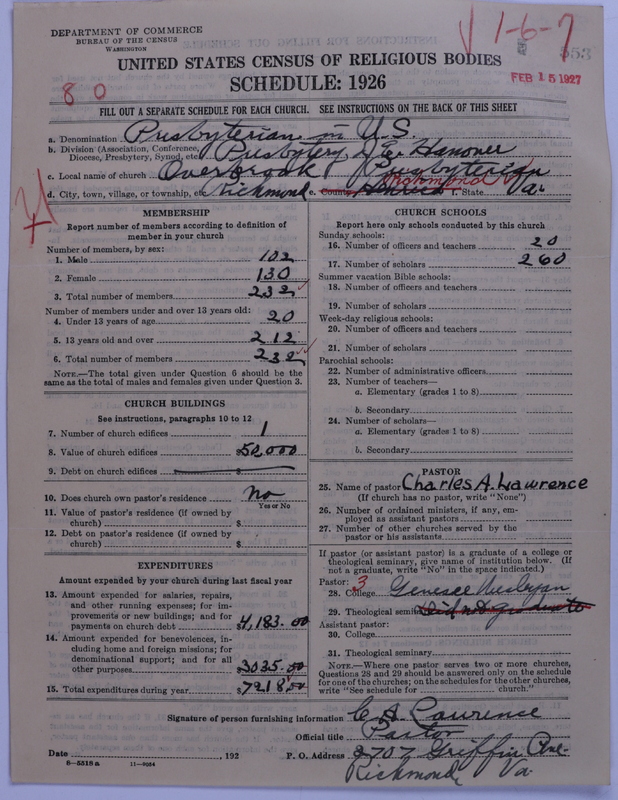 DEPARTMENT OF COMMERCE
BUREAU OF THE CENSUS
WASHINGTON
1-6-7
553
FEB 15 1927
UNITED STATES CENSUS OF RELIGIOUS BODIES
SCHEDULE: 1926
80
FILL OUT A SEPARATE SCHEDULE FOR EACH CHURCH. SEE INSTRUCTIONS ON THE BACK OF THIS SHEET
a. Denomination Presbyterian in U.S.
b. Division (Association, Conference, Diocese, Presbytery, Synod, etc. Presbytery of E. Hanover
c. Local name of church Overbrook Presbyterian
d. City, town, village, or township, etc. Richmond e. County Henrico Richmond f. State Va.
MEMBERSHIP
Report number of members according to definition of
member in your church
Number of members, by sex:
1. Male 102
2. Female 130
3. Total number of members 232
Number of members under and over 13 years old:
4. Under 13 years of age 20
5. 13 years old and over 212
6. Total number of members 232
NOTE.—The total given under Question 6 should be
same as the total of males and females given under Question 3.
CHURCH BUILDINGS
See instructions, paragraphs 10 to 12
7. Number of church edifices 1
8. Value of church edifices $50,000
9. Debt on church edifices $
10. Does church own pastor's residence No
Yes or No
11. Value of pastor's residence (if owned by
church) $
12. Debt on pastor's residence (if owned by
church) $
EXPENDITURES
Amount expended by your church during last fiscal year
13. Amount expended for salaries, repairs,
and other running expenses; for im-
provements or new buildings; and for
payments on church debt $4,183.00
14. Amount expended for benevolences, in-
cluding home and foreign missions; for
denominational support; and for all
other purposes 3035.00
15. Total expenditures during year $7218.00
CHURCH SCHOOLS
Report here only schools conducted by this church
Sunday schools:
16. Number of officers and teachers 20
17. Number of scholars 260
Summer vacation Bible schools:
18. Number of officers and teachers
19. Number of scholars
Week-day religious schools:
20. Number of officers and teachers
21. Number of scholars
Parochial schools:
22. Number of administrative officers
23. Number of teachers—
a. Elementary (grades 1 to 8)
b. Secondary
24. Number of scholars—
a. Elementary (grades 1 to 8)
b. Secondary
PASTOR
25. Name of pastor Charles A. Lawrence
(If church has no pastor, write "None")
26. Number of ordained ministers, if any, em-
ployed as assistant pastors
27. Number of other churches served by the
pastor or his assistants
If pastor (or assistant pastor) is a graduate of a college or
theological seminary, give name of institution below. (If
not a graduate, write "No" in the space indicated.)
Pastor: 3
28. College Genesee Wesleyan
29. Theological seminary Did not graduate
Assistant pastor:
30. College
31. Theological seminary
NOTE.—Where one pastor serves two or more churches,
Questions 28 and 29 should be answered only on the schedule
for one of the churches; on the schedules for the other churches,
write "See schedule for church."
Signature of person furnishing information C A Lawrence
Official title Pastor
Date , 192 P. O. Address 2707 Griffin Ave-
8-5518 a 11-9034
Richmond Va.